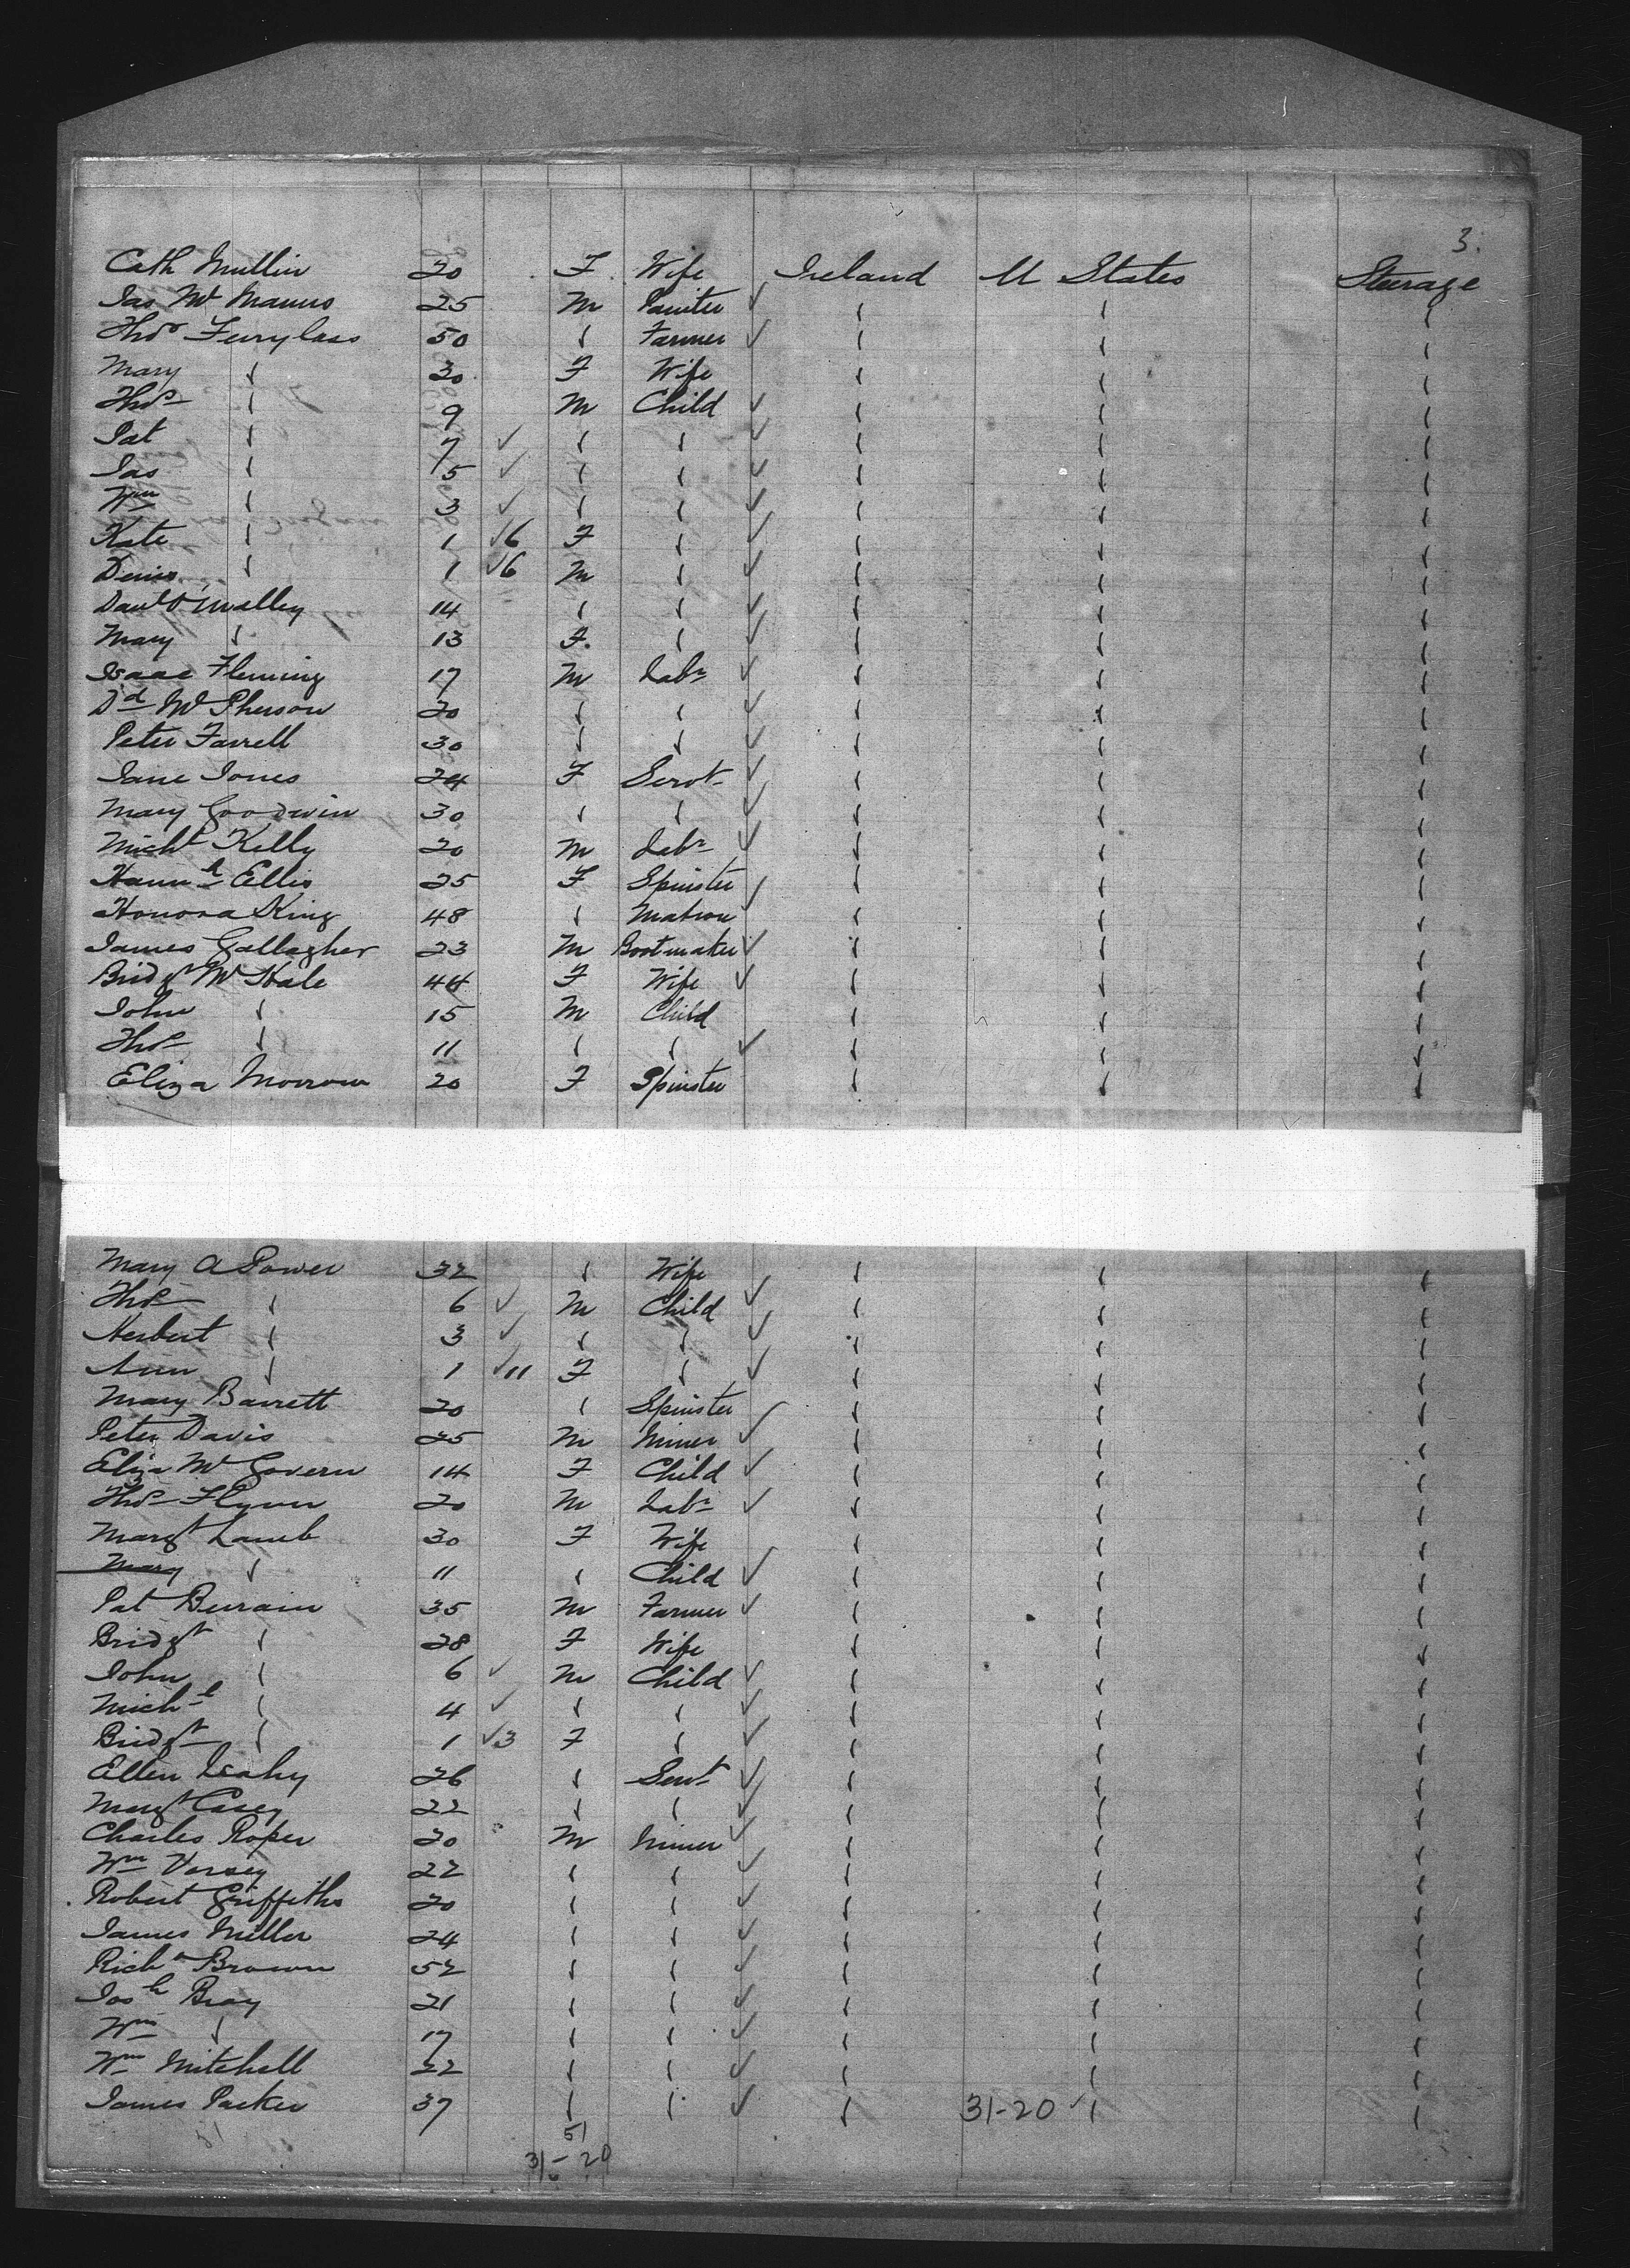 3.
Cath Mullin 20 F. Wife Ireland U States Steerage
Jas Mc Manus 25 M Painter ✓ " " "
Thos Furylass 50 " Farmer ✓ " " "
Mary " 30 F Wife " " "
Thos " 9 M Child ✓ " " "
Pat " 7 ✓ " " ✓ " " "
Jas " 5 ✓ " " ✓ " " "
Wm " 3 ✓ " " ✓ " " "
Kate " 1 ✓6 F " ✓ " " "
Denis " 1 ✓6 M " ✓ " " "
Danl O'Malley 14 " " ✓ " " "
Mary " 13 F. " ✓ " " "
Isaac Fleming 17 M Labr ✓ " " "
Dd McPherson 20 " " ✓ " " "
Peter Farrell 30 " " ✓ " " "
Jane Jones 24 F Servt ✓ " " "
Mary Goodwin 30 " " ✓ " " "
Michl Kelly 20 M Labr ✓ " " "
Hannh Ellis 25 F Spinster ✓ " " "
Honora King 48 " Matron " " "
James Gallagher 23 M Bootmaker ✓ " " "
Bridgt McHale 44 F Wife ✓ " " "
John " 15 M Child " " "
Thos " 11 " " ✓ " " "
Eliza Morrow 20 F Spinster " " "
Mary A Power 32 " Wife " " "
Thos " 6 ✓ M Child ✓ " " "
Herbert " 3 ✓ " " ✓ " " "
Ann " 1 ✓11 F " ✓ " " "
Mary Barrett 20 " Spinster ✓ " " "
Peter Davis 25 M Miner ✓ " " "
Eliza McGovern 14 F Child ✓ " " "
Thos Flynn 20 M Labr ✓ " " "
Margt Lamb 30 F Wife " " "
Mary " 11 " Child ✓ " " "
Pat Berrain 35 M Farmer ✓ " " "
Bridgt " 28 F Wife " " "
John " 6 ✓ M Child ✓ " " "
Michl " 4 ✓ " " ✓ " " "
Bridgt " 1 ✓3 F " ✓ " " "
Ellen Leahy 26 " Servt ✓ " " "
Margt Casey 22 " " ✓ " " "
Charles Roper 20 M Miner ✓ " " "
Wm Versey 22 " " ✓ " " "
Robert Griffiths 20 " " ✓ " " "
James Miller 24 " " ✓ " " "
Richd Brown 52 " " ✓ " " "
Josh Bray 21 " " ✓ " " "
Wm " 17 " " ✓ " " "
Wm Mitchell 22 " " ✓ " " "
James Parker 37 " " ✓ " 31-20 ✓ " "
51
31-20